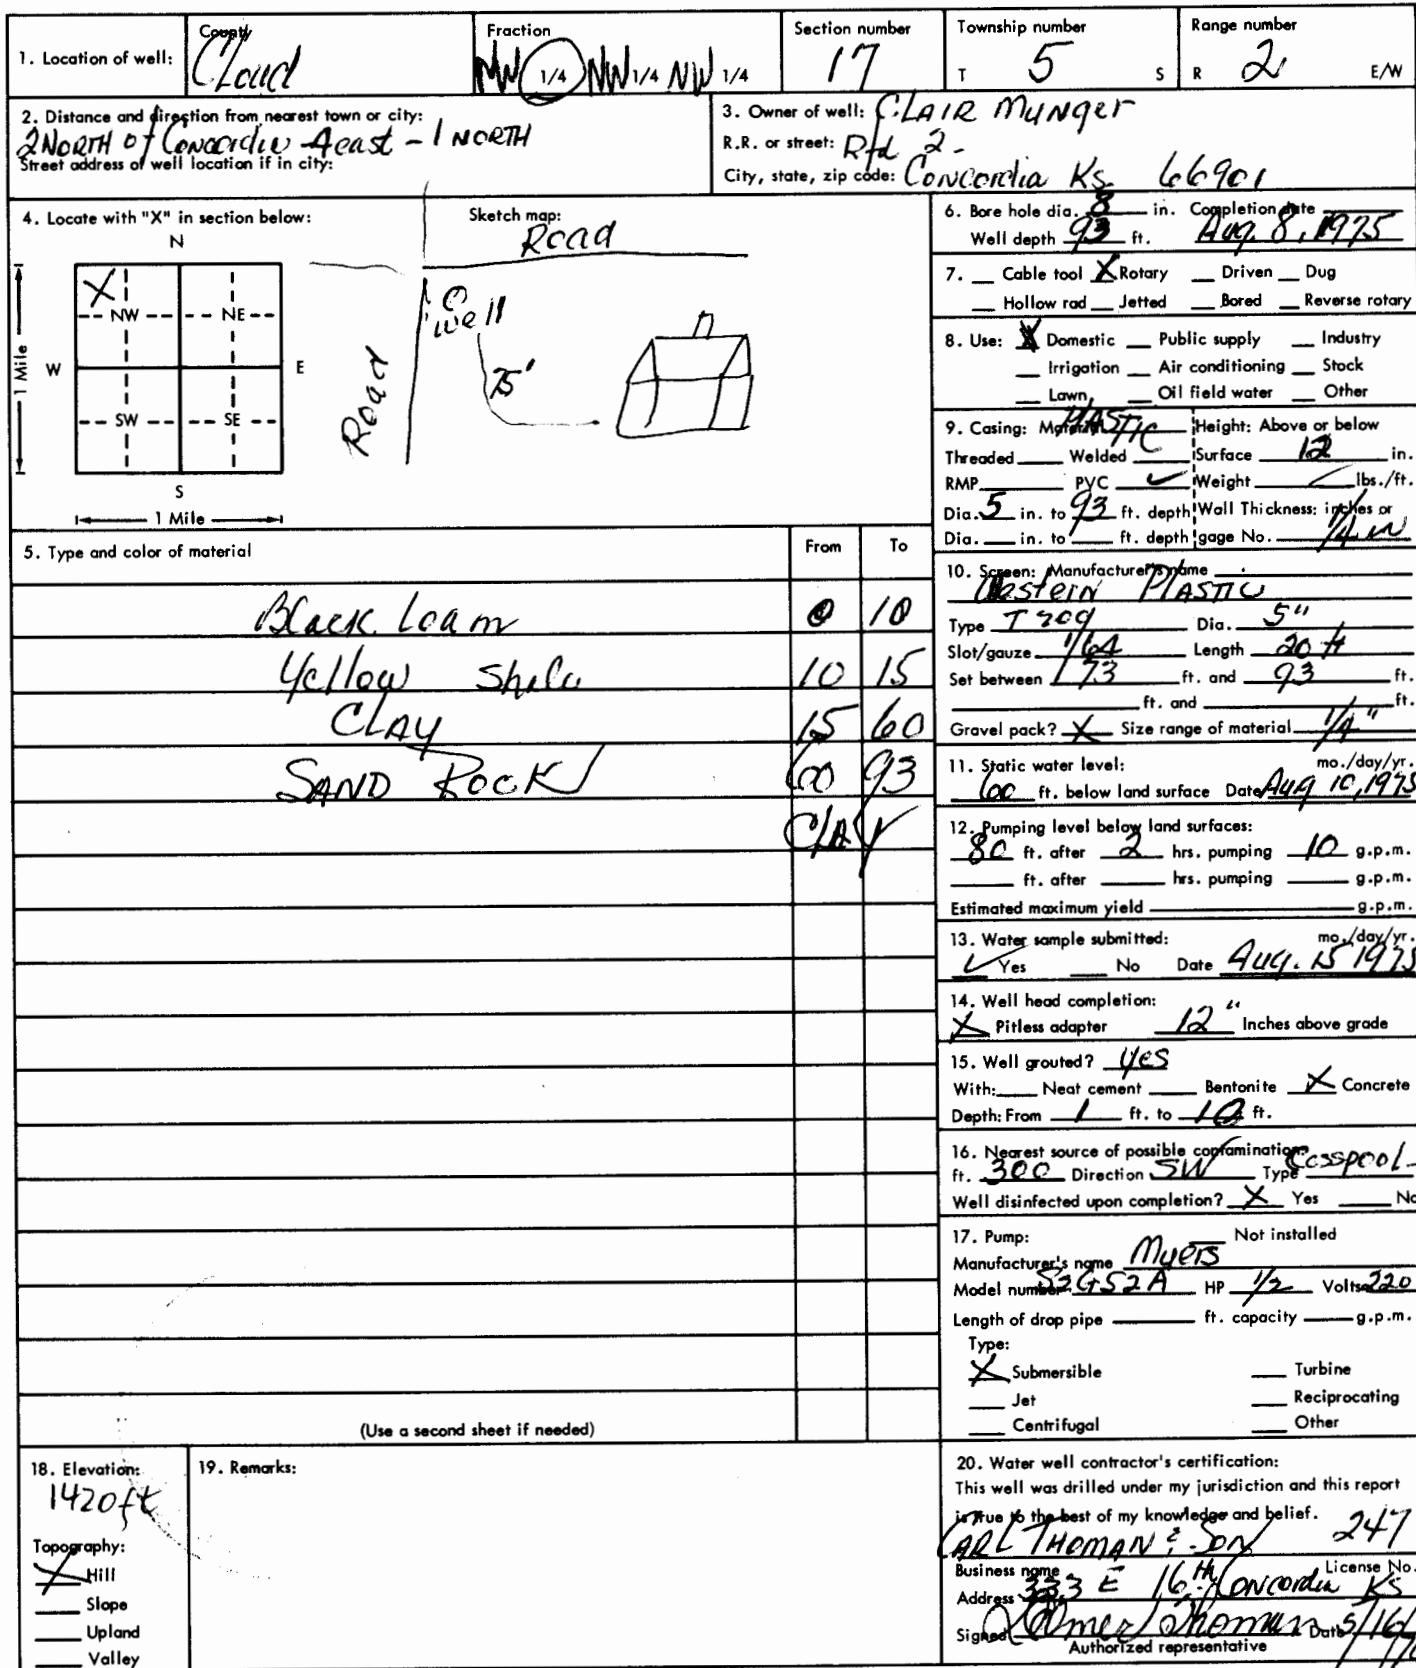 1. Location of well: County Cloud Fraction NW 1/4 NW 1/4 NW 1/4 Section number 17 Township number T 5 S Range number R 2 E/W
2. Distance and direction from nearest town or city:
2 NORTH of Concordia 4 east - 1 NORTH
Street address of well location if in city:
3. Owner of well: CLAIR Munger
R.R. or street: Rfd 2-
City, state, zip code: Concordia Ks 66901
4. Locate with "X" in section below:
N
X
NW NE
W E
SW SE
S
1 Mile
1 Mile
Sketch map:
Road
Well
75'
Road
5. Type and color of material From To
Black Loam 0 10
Yellow Shale 10 15
CLAY 15 60
SAND ROCK 60 93
CLAY
(Use a second sheet if needed)
6. Bore hole dia. 8 in. Completion date
Well depth 93 ft. Aug. 8, 1975
7. Cable tool X Rotary Driven Dug
Hollow rad Jetted Bored Reverse rotary
8. Use: X Domestic Public supply Industry
Irrigation Air conditioning Stock
Lawn Oil field water Other
9. Casing: Material PLASTIC Height: Above or below
Threaded Welded Surface 12 in.
RMP PVC ✓ Weight lbs./ft.
Dia. 5 in. to 93 ft. depth Wall Thickness: inches or
Dia. in. to ft. depth gage No. 1/4 in
10. Screen: Manufacturer's name
Western PLASTIC
Type Dia. 5"
Slot/gauze 1/64 Length 20 ft
Set between 73 ft. and 93 ft.
ft. and ft.
Gravel pack? X Size range of material 1/4"
11. Static water level: mo./day/yr.
60 ft. below land surface Date Aug 10, 1975
12. Pumping level below land surfaces:
80 ft. after 2 hrs. pumping 10 g.p.m.
ft. after hrs. pumping g.p.m.
Estimated maximum yield g.p.m.
13. Water sample submitted: mo./day/yr.
✓ Yes No Date Aug. 15 1975
14. Well head completion:
X Pitless adapter 12" Inches above grade
15. Well grouted? yes
With: Neat cement Bentonite X Concrete
Depth: From 1 ft. to 10 ft.
16. Nearest source of possible contamination:
ft. 300 Direction SW Type Cesspool
Well disinfected upon completion? X Yes No
17. Pump: Not installed
Manufacturer's name Myers
Model number S2GS2A HP 1/2 Volts 220
Length of drop pipe ft. capacity g.p.m.
Type:
X Submersible Turbine
Jet Reciprocating
Centrifugal Other
18. Elevation:
1420 ft
Topography:
X Hill
Slope
Upland
Valley
19. Remarks:
20. Water well contractor's certification:
This well was drilled under my jurisdiction and this report
is true to the best of my knowledge and belief.
CARL THOMAN & SON 247
Business name License No.
Address 333 E 16th Concordia Ks
Signed Elmer Thoman Date 5/16/
Authorized representative